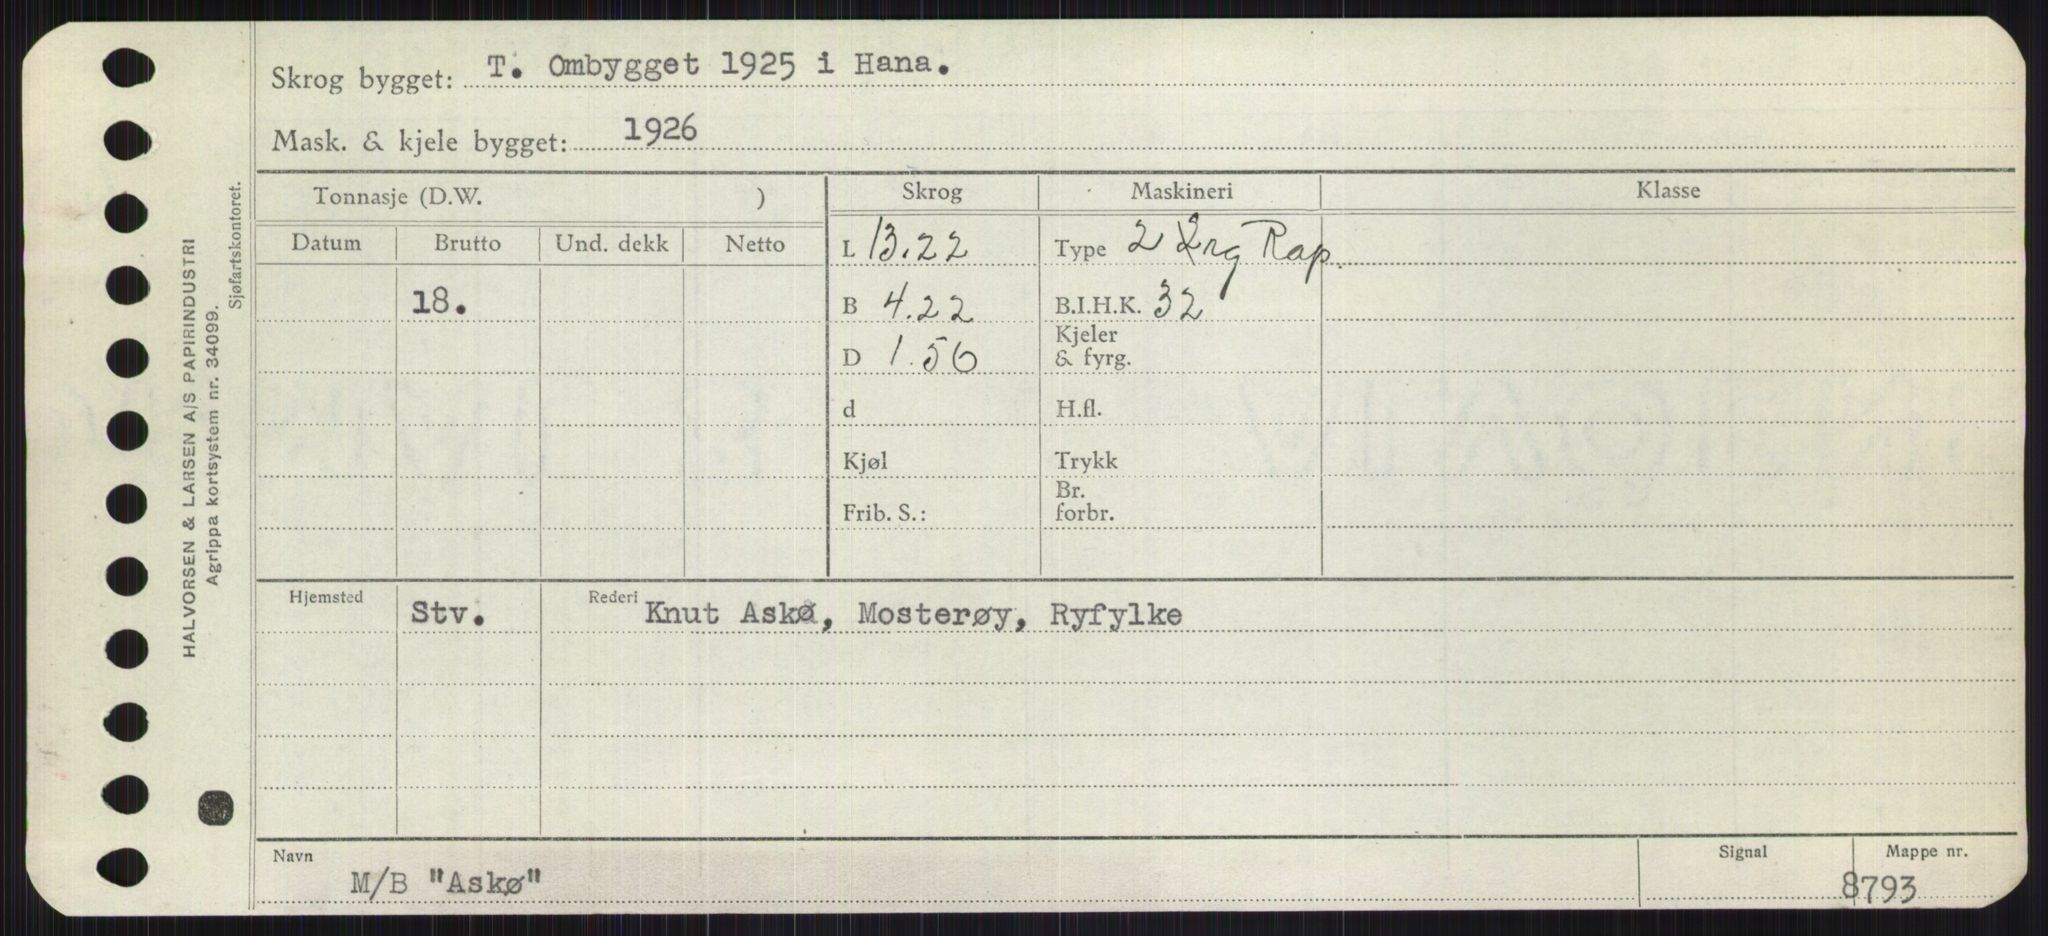 Skrog bygget: T. Ombygget 1925 i Hana.
Mask. & kjele bygget: 1926
Tonnasje (D.W. ) Skrog Maskineri Klasse
Datum Brutto Und. dekk Netto L 13.22 Type 2 Rap.
18. B 4.22 B.I.H.K. 32
D 1.50 Kjeler & fyrg.
d H.fl.
Kjøl Trykk
Frib. S.: Br. forbr.
Hjemsted Stv. Rederi Knut Askø, Mosterøy, Ryfylke
Navn M/B "Askø" Signal Mappe nr. 8793
HALVORSEN & LARSEN A/S PAPIRINDUSTRI
Agrippa kortsystem nr. 34099.
Sjøfartskontoret.